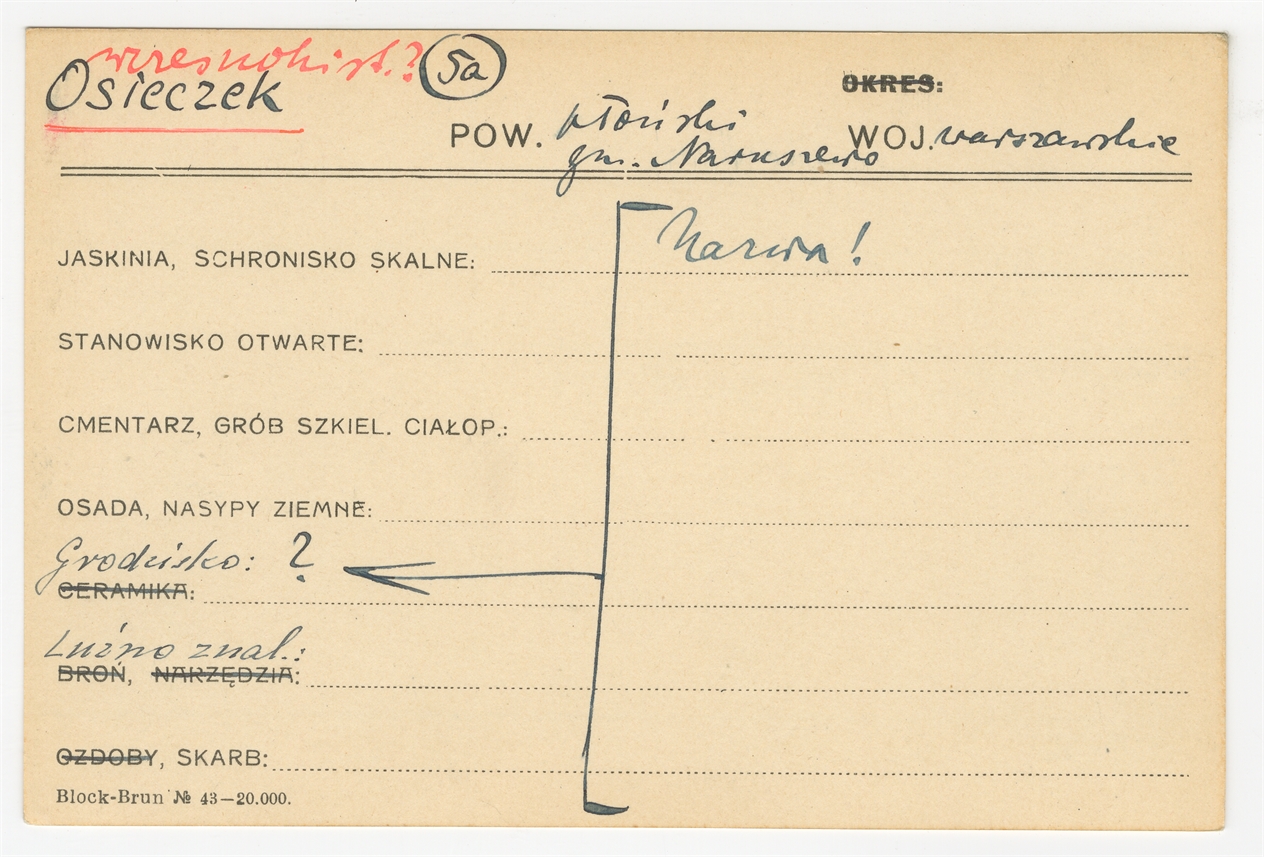 wczesnohist.?
Osieczek 5a
OKRES:
POW. płoński WOJ. warszawskie
gm. Naruszewo
Nazwa!
JASKINIA, SCHRONISKO SKALNE:
STANOWISKO OTWARTE:
CMENTARZ, GRÓB SZKIEL. CIAŁOP.:
OSADA, NASYPY ZIEMNE:
Grodzisko: ?
CERAMIKA:
Luźno znal.:
BROŃ, NARZĘDZIA:
OZDOBY, SKARB:
Block-Brun № 43—20.000.